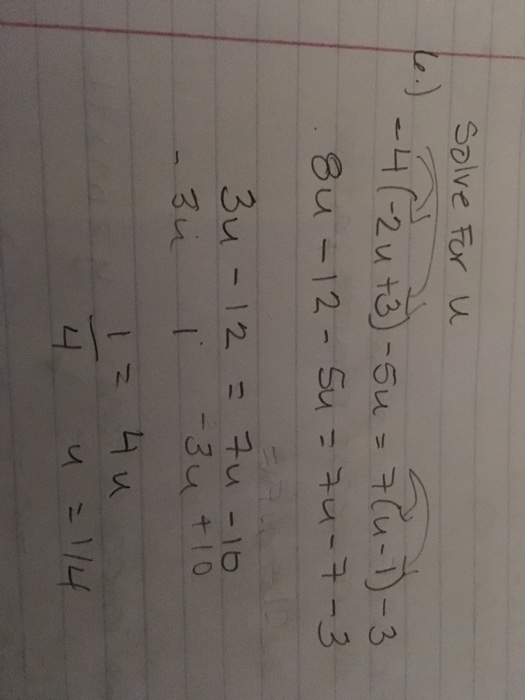 Solve For u
6.) -4(-2u+3)-5u = 7(u-1)-3
8u-12-5u = 7u-7-3
3u-12 = 7u-10
-3u -3u +10
1 = 4u
1/4 u = 1/4